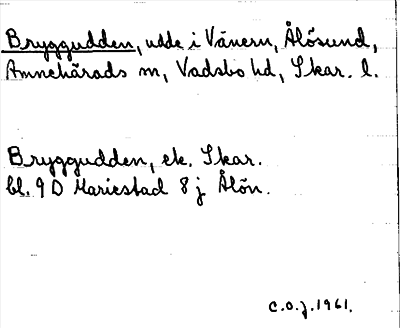 Bryggudden, udde i Vänern, Ålösund,
Amnehärads sn, Vadsbo hd, Skar. l.
Bryggudden, ek. Skar.
bl. 9 D Mariestad 8 j Ålön.
C.O.J. 1961.